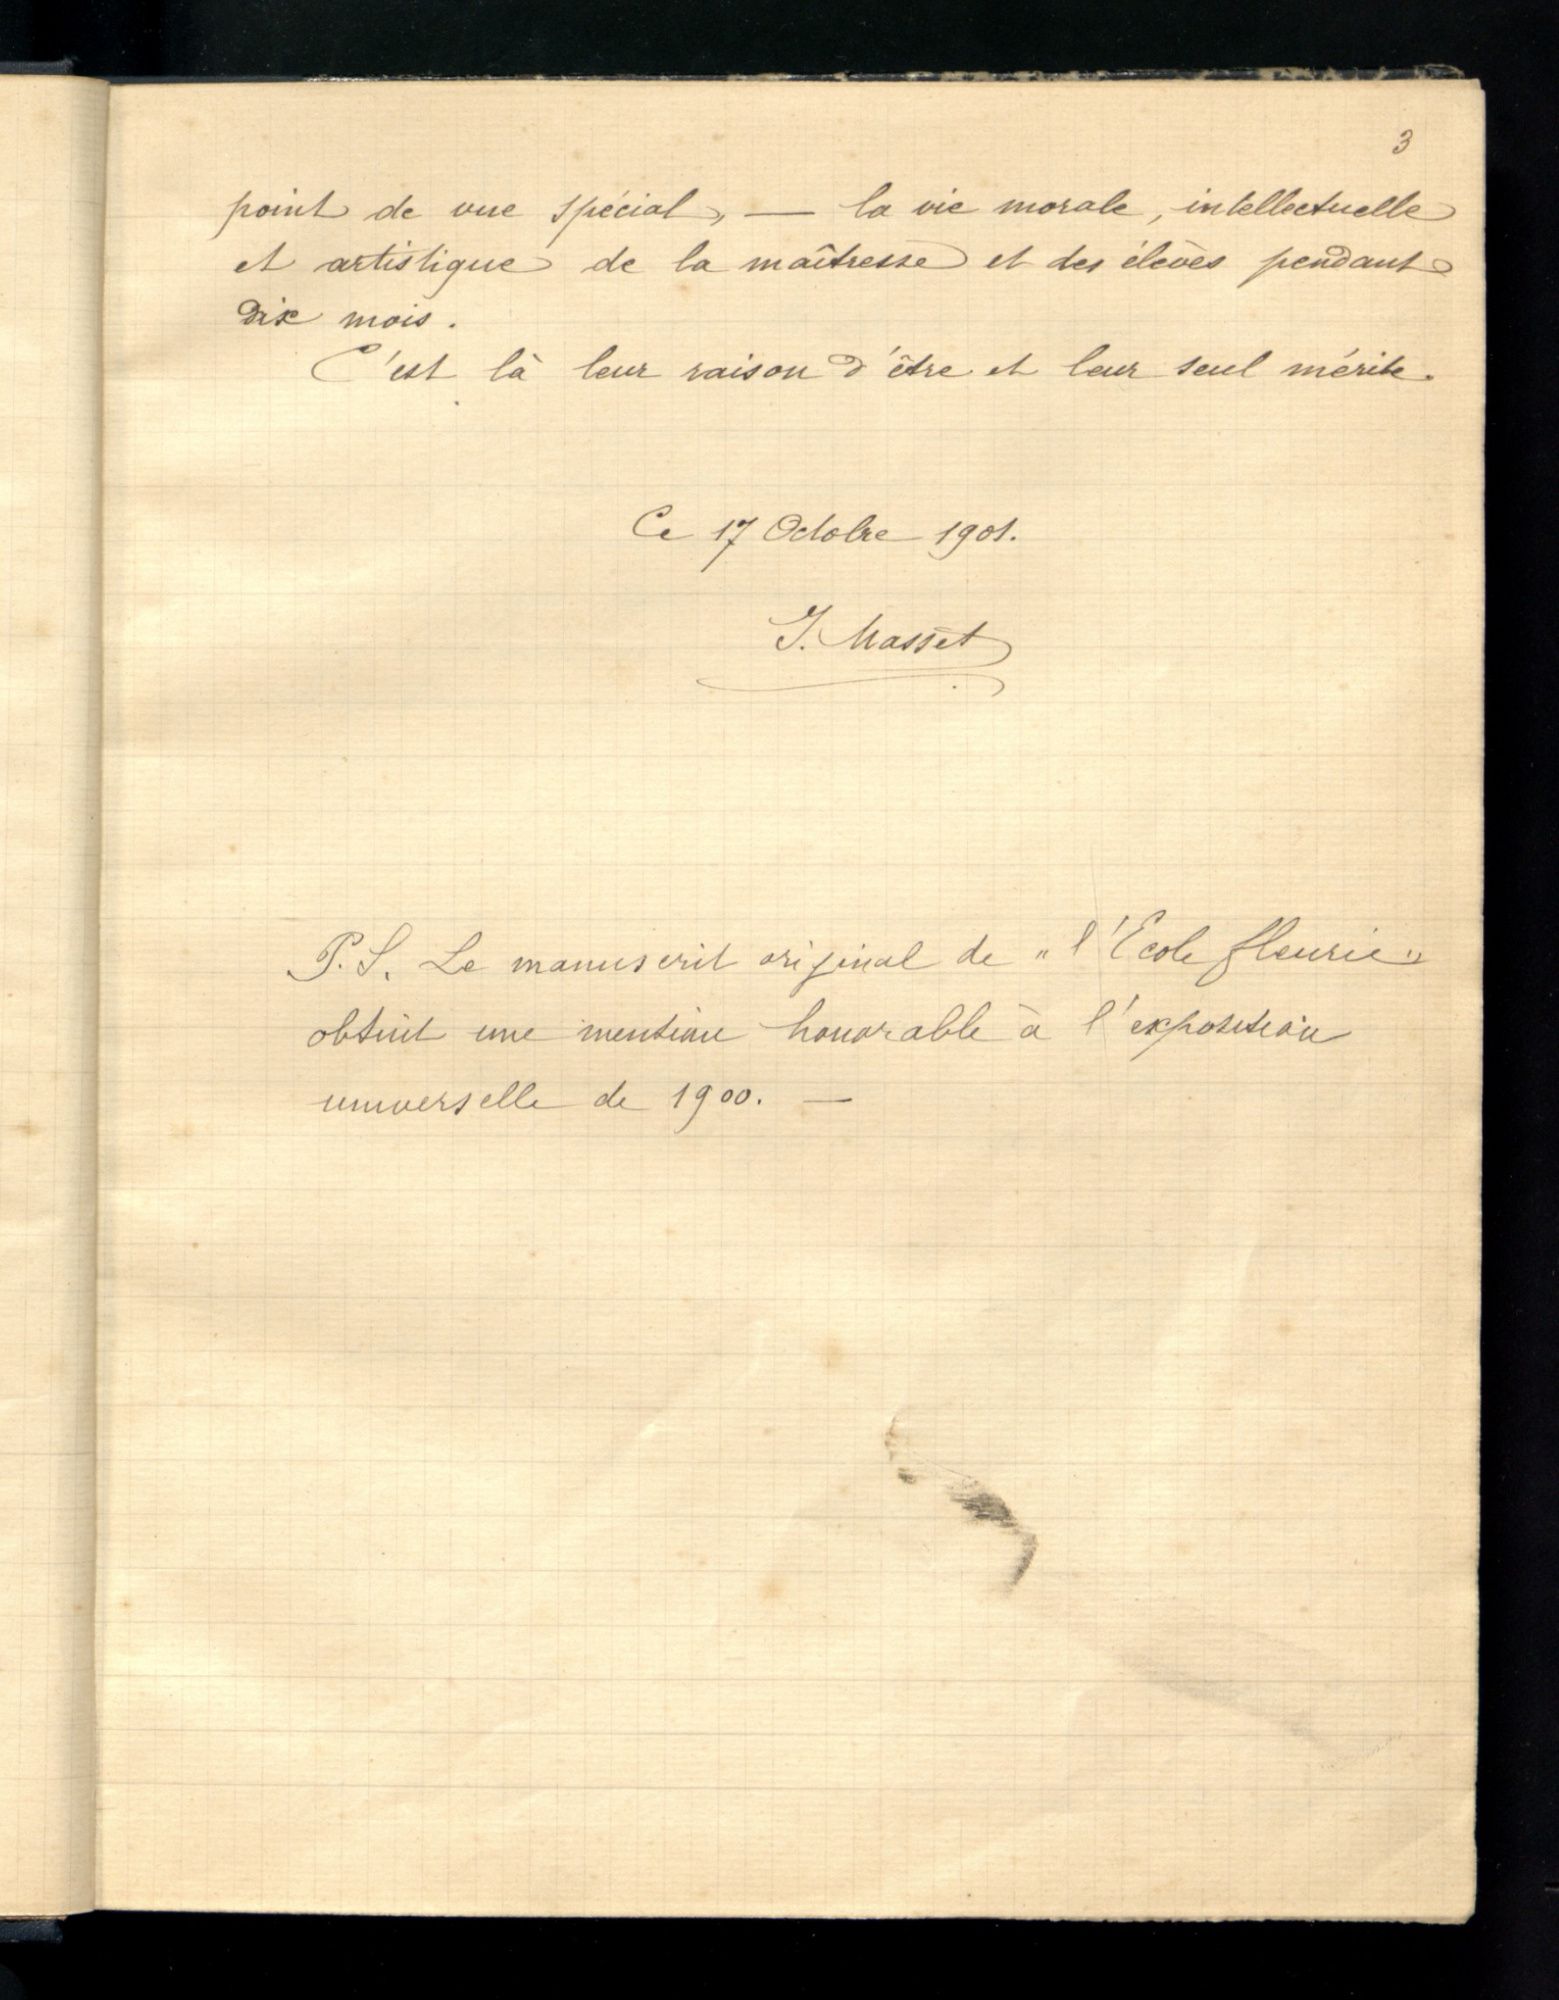 3
point de vue spécial, — la vie morale, intellectuelle
et artistique de la maîtresse et des élèves pendant
dix mois.
C'est là leur raison d'être et leur seul mérite.
Ce 17 Octobre 1901.
J. Masset
P.S. Le manuscrit original de "l'Ecole fleurie"
obtint une mention honorable à l'exposition
universelle de 1900. —